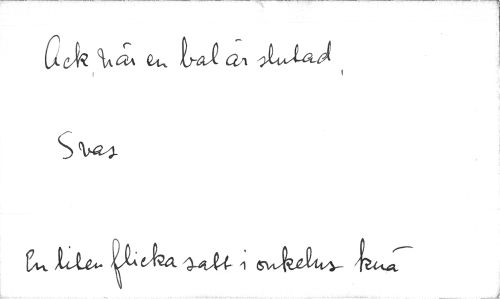 Ack, när en bal är slutad,
Svas
En liten flicka satt i onkelns knä